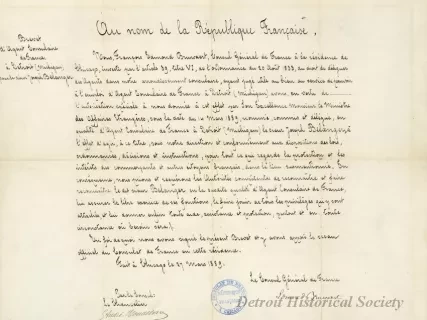 Au nom de la République Française.
Brevet
d'Agent Consulaire
de France
à Détroit (Michigan)
pour le sieur Joseph Bélanger
Nous, François Edmond Bruwaert, Consul Général de France à la résidence de
Chicago, investi par l'article 39, titre VI, de l'ordonnance du 20 Août 1833, du droit de déléguer
des Agents dans notre arrondissement consulaire, ayant jugé utile au bien du service de pourvoir
à l'emploi d'Agent Consulaire de France à Détroit (Michigan) avons, en vertu de
l'autorisation spéciale à nous donnée à cet effet par Son Excellence Monsieur le Ministre
des Affaires Étrangères, sous la date du 14 Mars 1889, nommé, commis et délégué, en
qualité d'Agent Consulaire de France à Détroit (Michigan), le sieur Joseph Bélanger, à
l'effet d'agir, à ce titre, sous notre direction et conformément aux dispositions des lois,
ordonnances, décisions et instructions, pour tout ce qui regarde la protection et les
intérêts des commerçants et autres citoyens français, dans le lieu susmentionné. En
conséquence, nous prions et requérons les Autorités constituées de reconnaître et faire
reconnaître le dit sieur Bélanger en la susdite qualité d'Agent Consulaire de France,
lui assurer le libre exercice de ses fonctions, le faire jouir de tous les privilèges qui y sont
attachés, et lui donner enfin toute aide, assistance et protection, partout et en toute
circonstance où besoin sera.
En foi de quoi nous avons signé le présent Brevet et y avons apposé le sceau
officiel du Consulat de France en cette résidence.
Fait à Chicago le 27 Mars 1889.
Le Consul Général de France
Par le Consul
Le Chancelier
Detroit Historical Society